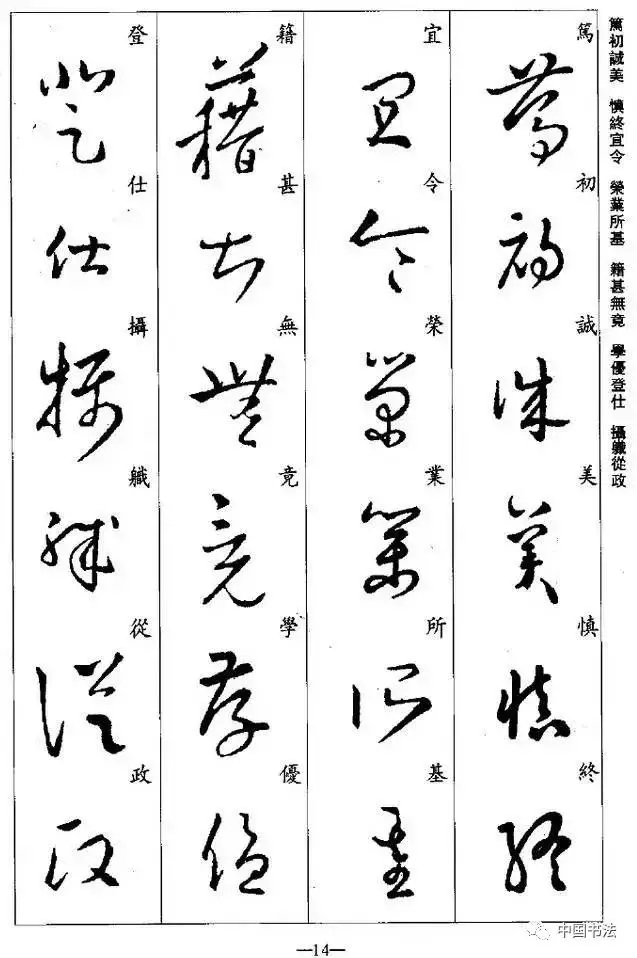 篤初誠美 慎終宜令 榮業所基 籍甚無竟 學優登仕 攝職從政
篤初誠美慎終
宜令榮業所基
籍甚無竟學優
登仕攝職從政
—14—
中国书法